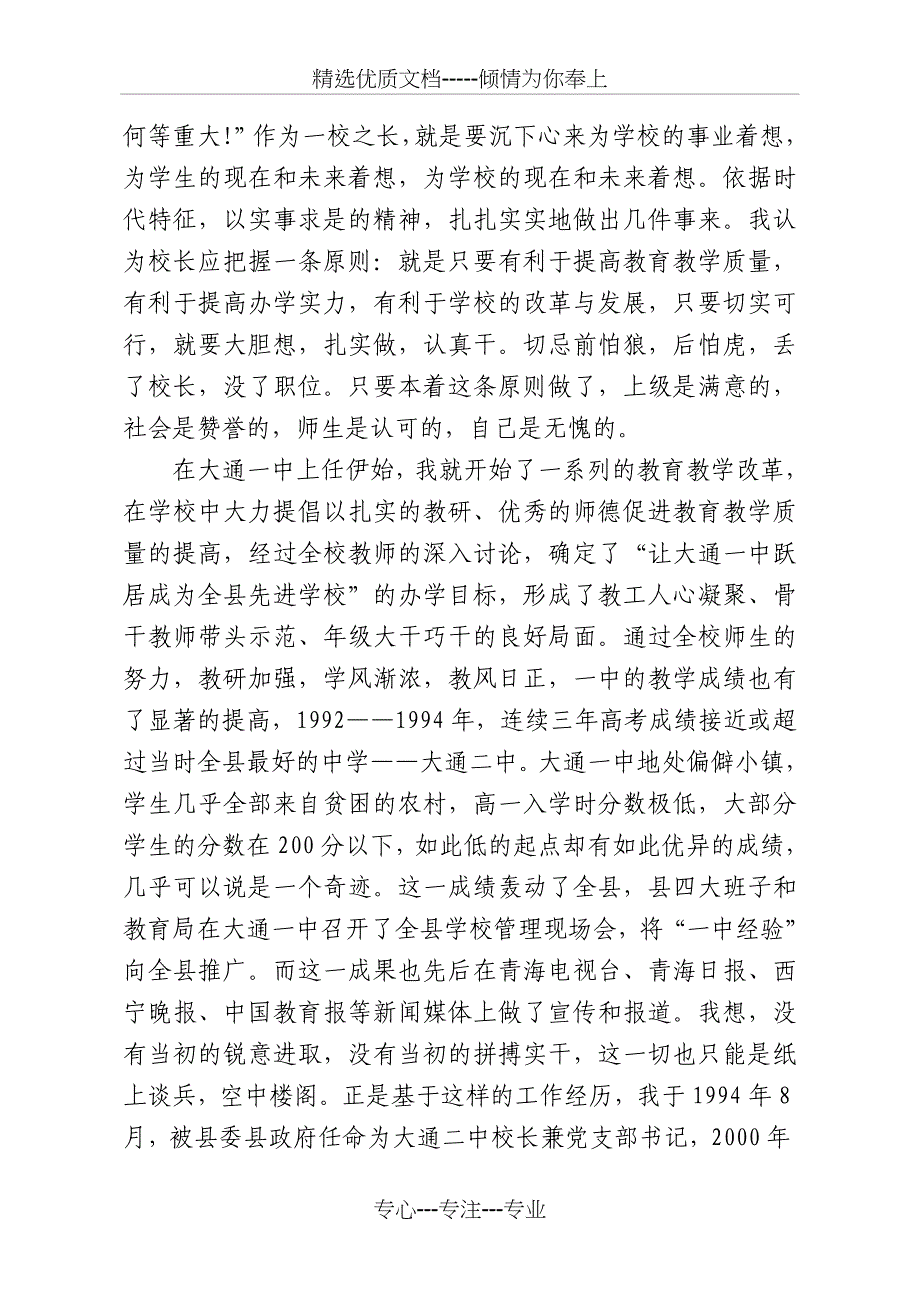 精选优质文档-----倾情为你奉上
何等重大！”作为一校之长，就是要沉下心来为学校的事业着想，
为学生的现在和未来着想，为学校的现在和未来着想。依据时
代特征，以实事求是的精神，扎扎实实地做出几件事来。我认
为校长应把握一条原则：就是只要有利于提高教育教学质量，
有利于提高办学实力，有利于学校的改革与发展，只要切实可
行，就要大胆想，扎实做，认真干。切忌前怕狼，后怕虎，丢
了校长，没了职位。只要本着这条原则做了，上级是满意的，
社会是赞誉的，师生是认可的，自己是无愧的。
在大通一中上任伊始，我就开始了一系列的教育教学改革，
在学校中大力提倡以扎实的教研、优秀的师德促进教育教学质
量的提高，经过全校教师的深入讨论，确定了“让大通一中跃
居成为全县先进学校”的办学目标，形成了教工人心凝聚、骨
干教师带头示范、年级大干巧干的良好局面。通过全校师生的
努力，教研加强，学风渐浓，教风日正，一中的教学成绩也有
了显著的提高，1992——1994 年，连续三年高考成绩接近或超
过当时全县最好的中学——大通二中。大通一中地处偏僻小镇，
学生几乎全部来自贫困的农村，高一入学时分数极低，大部分
学生的分数在 200 分以下，如此低的起点却有如此优异的成绩，
几乎可以说是一个奇迹。这一成绩轰动了全县，县四大班子和
教育局在大通一中召开了全县学校管理现场会，将“一中经验”
向全县推广。而这一成果也先后在青海电视台、青海日报、西
宁晚报、中国教育报等新闻媒体上做了宣传和报道。我想，没
有当初的锐意进取，没有当初的拼搏实干，这一切也只能是纸
上谈兵，空中楼阁。正是基于这样的工作经历，我于 1994 年 8
月，被县委县政府任命为大通二中校长兼党支部书记，2000 年
专心---专注---专业